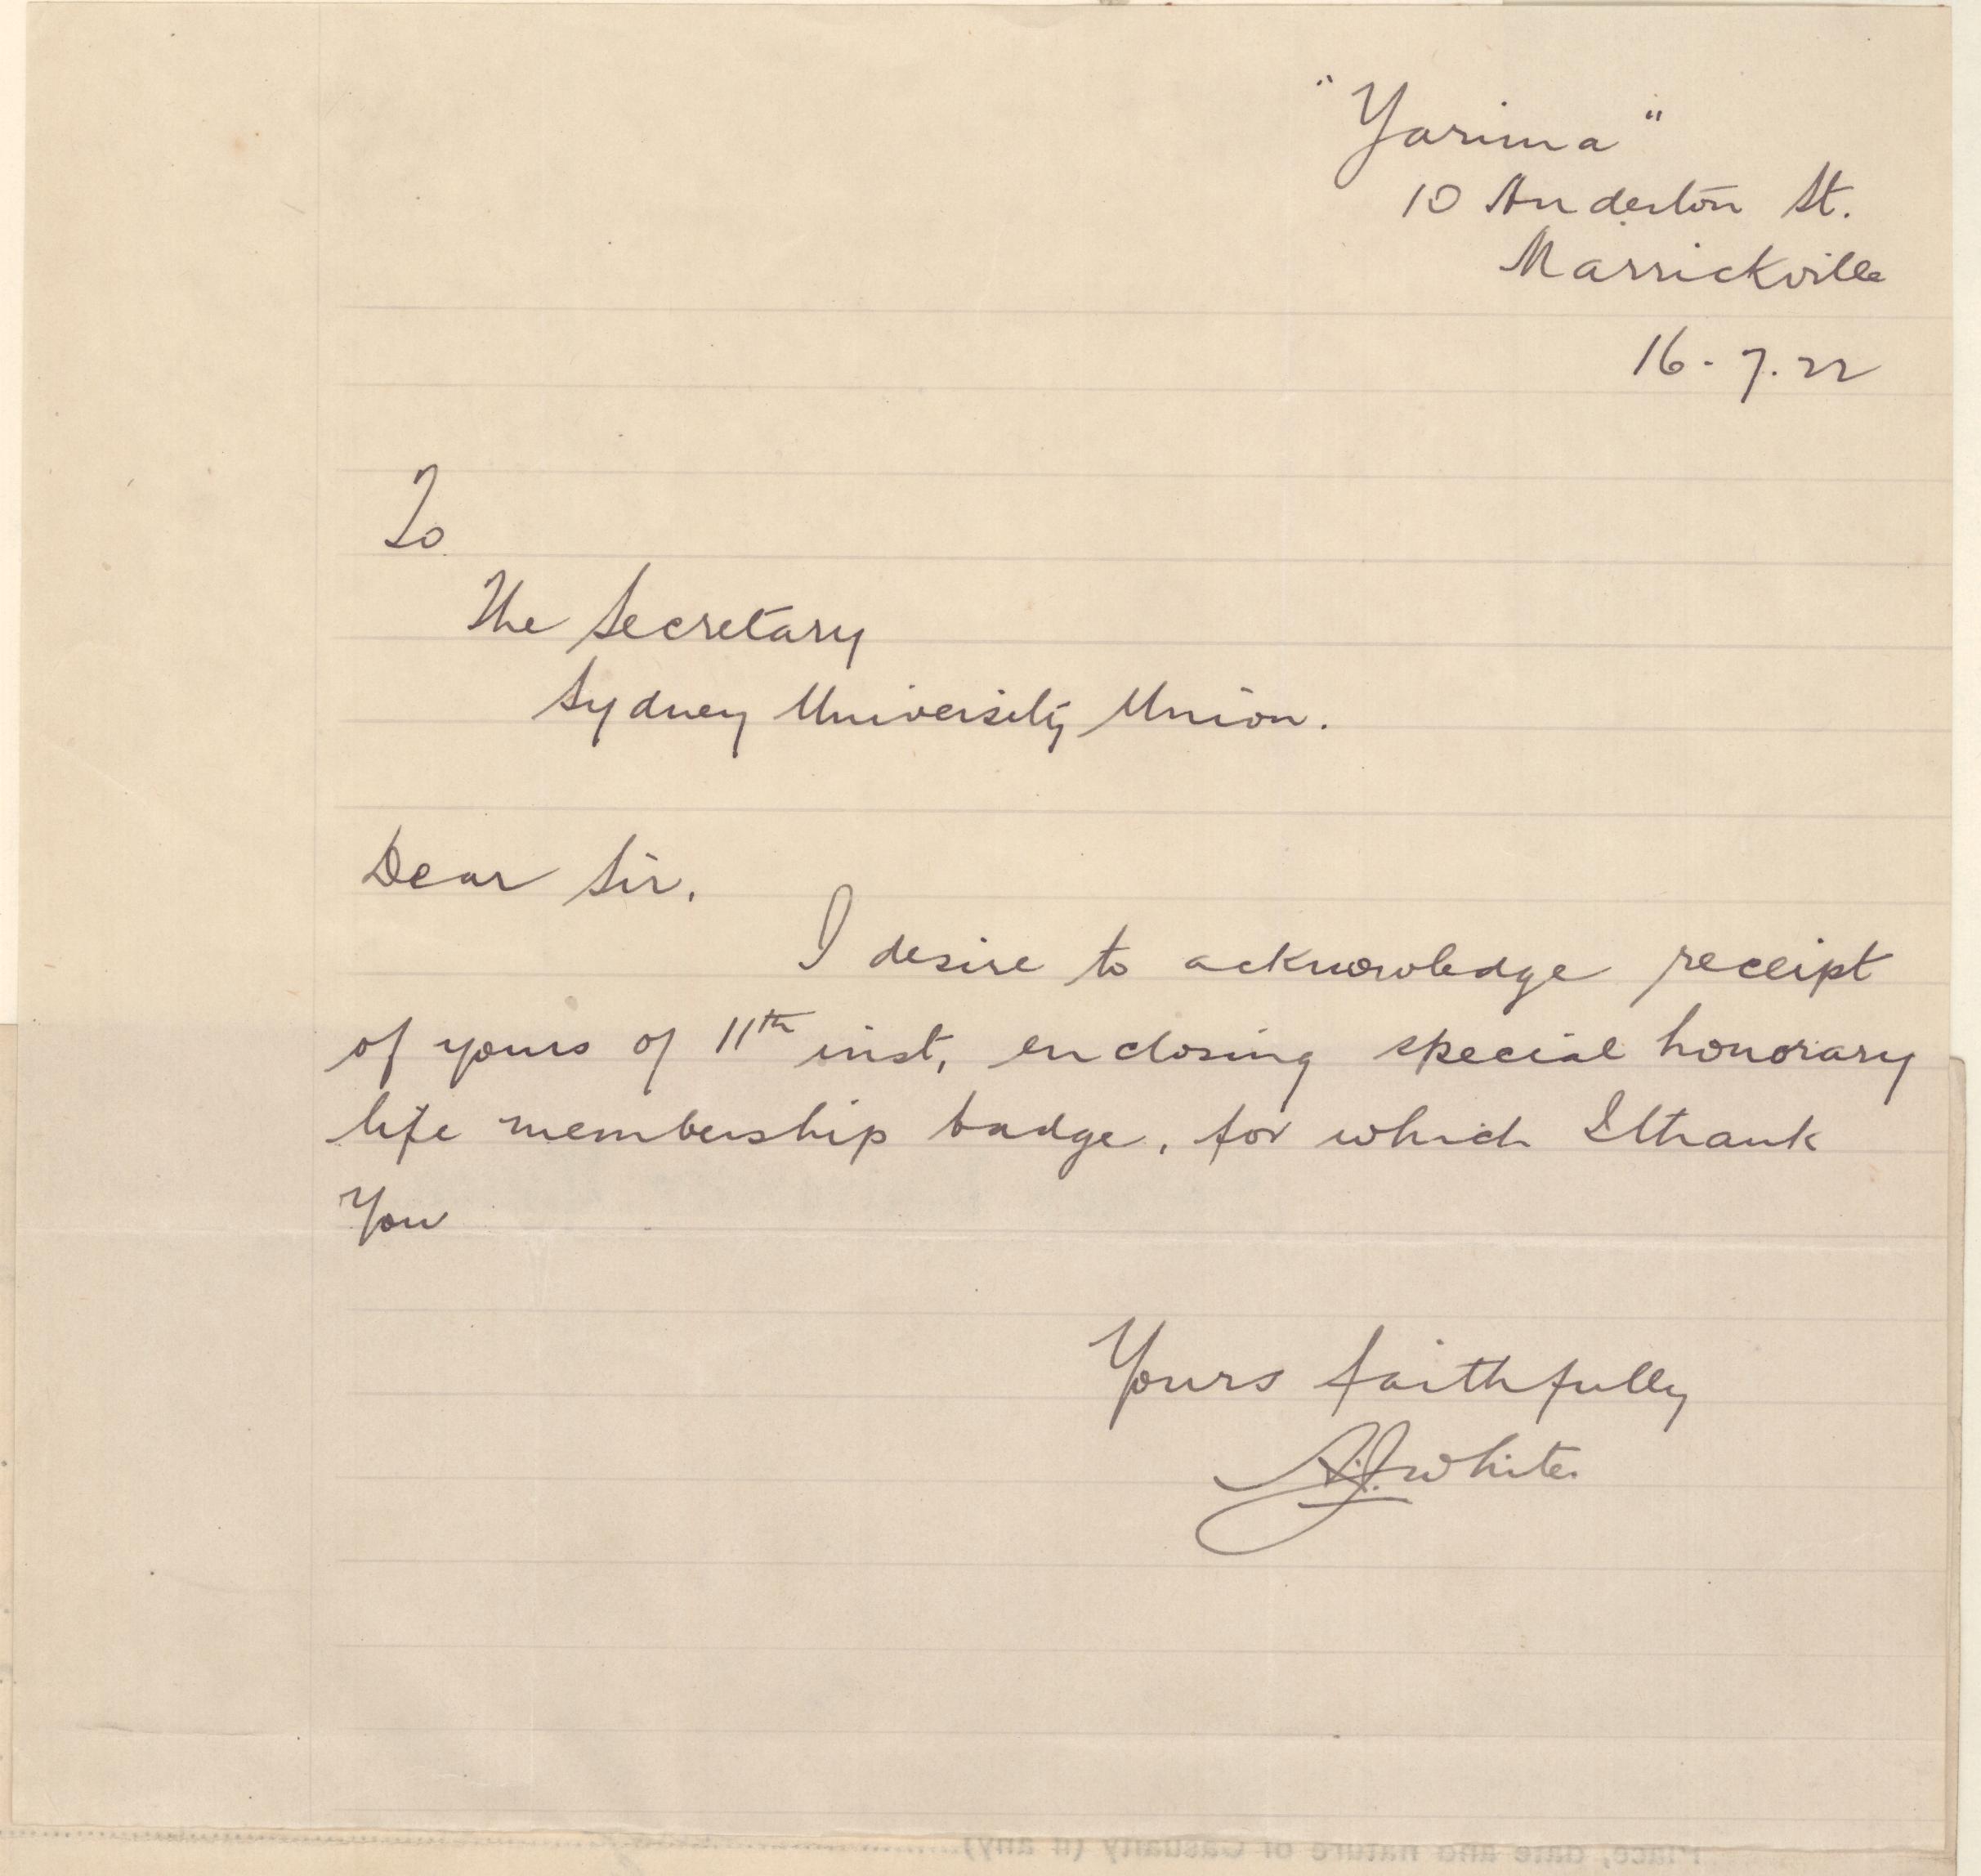 "Yarima"
10 Anderton St.
Marrickville
16-7.22
To
The Secretary
Sydney University Union.
Dear Sir.
I desire to acknowledge receipt
of yours of 11th inst, enclosing special honorary
life membership badge, for which I thank
You
Yours faithfully
A.J. White.
Place, date and nature of Casualty (if any)